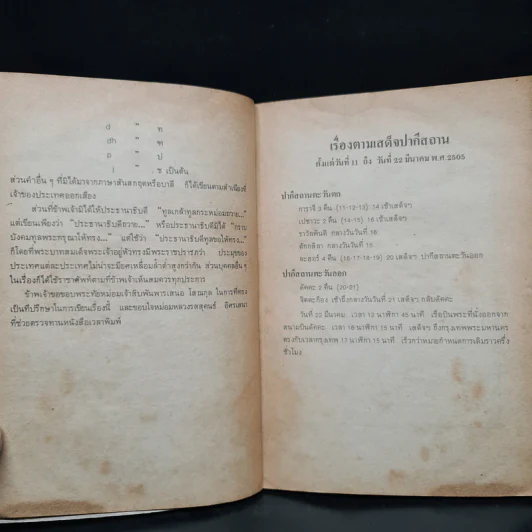 d " ท
dh " ฑ
p " ป
j " ช เป็นต้น
ส่วนคำอื่น ๆ ที่มิได้มาจากภาษาสันสกฤตหรือบาลี ก็ได้เขียนตามสำเนียงที่
เจ้าของประเทศออกเสียง
ส่วนที่ข้าพเจ้ามิได้ให้ประธานาธิบดี "ทูลเกล้าทูลกระหม่อมถวาย..."
แต่เขียนเพียงว่า "ประธานาธิบดีถวาย..." หรือประธานาธิบดีมิได้ "กราบ
บังคมทูลพระกรุณาให้ทรง..." แต่ใช้ว่า "ประธานาธิบดีทูลขอให้ทรง..."
ก็โดยที่พระบาทสมเด็จพระเจ้าอยู่หัวทรงมีพระราชปรารภว่า ประมุขของ
ประเทศแต่ละประเทศไม่น่าจะมียศเหลื่อมล้ำต่ำสูงกว่ากัน ส่วนบุคคลอื่น ๆ
ในเรื่องก็ได้ใช้ราชาศัพท์ตามที่ข้าพเจ้าเห็นสมควรทุกประการ
ข้าพเจ้าขอขอบพระทัยหม่อมเจ้าสิบพันพารเสนอ โสณกุล ในการที่ทรง
เป็นที่ปรึกษาในการเขียนเรื่องนี้ และขอบใจหม่อมหลวงรสสุคนธ์ อิศรเสนา
ที่ช่วยตรวจทานหนังสือเวลาพิมพ์
เรื่องตามเสด็จปากีสถาน
ตั้งแต่วันที่ 11 ถึง วันที่ 22 มีนาคม พ.ศ. 2505
ปากีสถานตะวันตก
การาจี 3 คืน (11-12-13) 14 เช้าเสด็จฯ
เปชาวะ 2 คืน (14-15) 16 เช้าเสด็จฯ
ราวัลพินดี กลางวันวันที่ 16
ตักกสิลา กลางวันวันที่ 16
ละฮอร์ 4 คืน (16-17-18-19) 20 เสด็จฯ ปากีสถานตะวันออก
ปากีสถานตะวันออก
ดัคคะ 2 คืน (20-21)
จิตตะก้อง เช้าถึงกลางวันวันที่ 21 เสด็จฯ กลับดัคคะ
วันที่ 22 มีนาคม เวลา 12 นาฬิกา 45 นาที เรือบินพระที่นั่งออกจาก
สนามบินดัคคะ เวลา 16 นาฬิกา 15 นาที เสด็จฯ ถึงกรุงเทพพระมหานคร
ตรงกับเวลากรุงเทพ 17 นาฬิกา 15 นาที เร็วกว่าหมายกำหนดการเดิมราวครึ่ง
ชั่วโมง